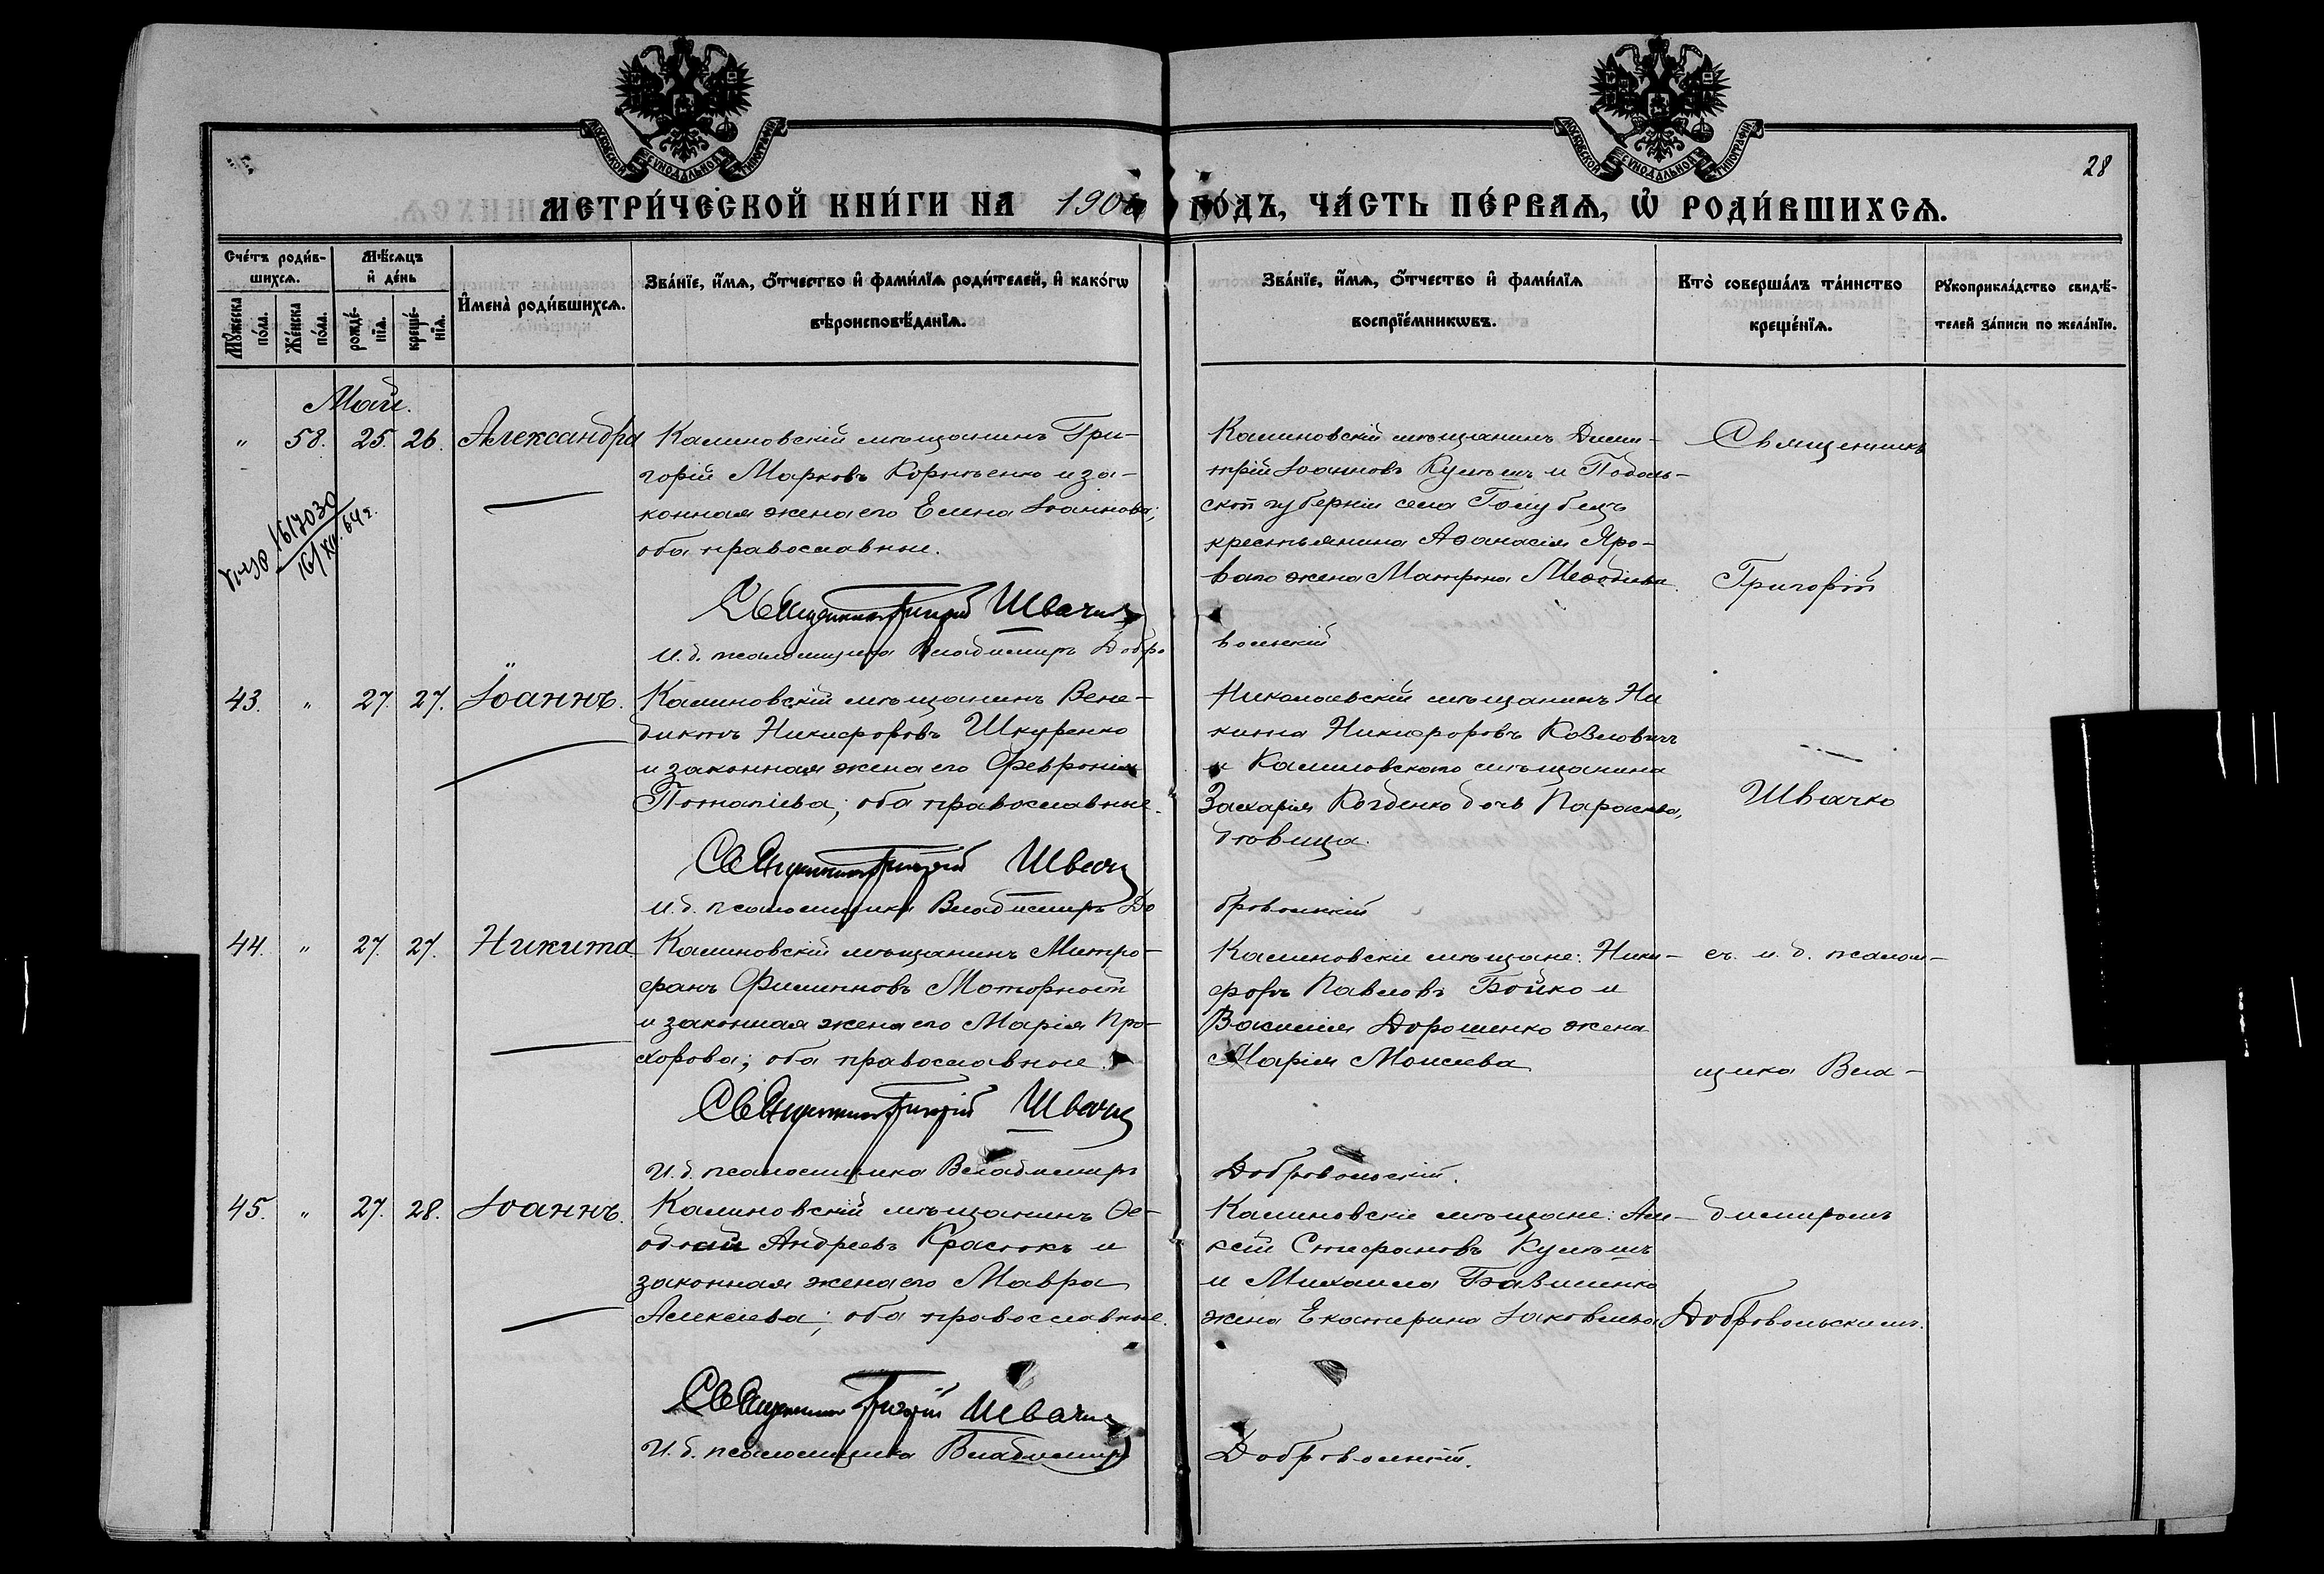 МОСКОВСКОЙ СѴНОДАЛЬНОЙ ТИПОГРАФІИ.
МОСКОВСКОЙ СѴНОДАЛЬНОЙ ТИПОГРАФІИ.
28
МЕТРИ́ЧЕСКОЙ КНИ́ГИ НА 1906 ГО́ДЪ, ЧА́СТЬ ПЕ́РВАѦ, Ѡ РОДИ́ВШИХСѦ.
Сче́тъ роди́в-
шихсѧ.
Мꙋ́жеска пола.
Же́нска по́ла.
Мѣ́сѧцъ
и҆ де́нь
рожде́-
нїѧ.
креще́-
нїѧ.
И҆мена̀ роди́вшихсѧ.
Зва́нїе, и҆́мѧ, ѻ҆́тчество и҆ фами́лїѧ роди́телей, и҆ како́гѡ
вѣроисповѣ́данїѧ.
Зва́нїе, и҆́мѧ, ѻ҆́тчество и҆ фами́лїѧ
воспрїе́мникѡвъ.
Кто̀ соверша́лъ та́инство
креще́нїѧ.
Рꙋкоприкла́дство свидѣ́-
телей за́писи по жела́нїю.
Май.
„ 58. 25. 26. Александра
Калиновскій мѣщанинъ Гри-
горій Марковъ Корнѣенко и за-
конная жена его Елена Іоаннова;
оба православные.
Священникъ Григорій Швачко
И. д. псаломщика Владимиръ Добро
Калиновскій мѣщанинъ Дими-
трій Іоанновъ Кулѣшъ и Подоль-
ской губерніи села Голубечъ
крестьянина Аѳанасія Яро-
ваго жена Матрона Меѳодіева.
вольскій
Священникъ
Григорій
1617030
16/XII 64 г.
43. „ 27. 27. Іоаннъ.
Калиновскій мѣщанинъ Вене-
диктъ Никифоровъ Шкуренко
и законная жена его Февронія
Потапіева; оба православные.
Священникъ Григорій Швачко
И. д. псаломщика Владимиръ До
Николаевскій мѣщанинъ Ни
кита Никифоровъ Козловичъ
и Калиновскаго мѣщанина
Захарія Когденко дочь Параскева,
дѣвица.
бровольскій
Швачко
44. „ 27. 27. Никита
Калиновскій мѣщанинъ Митро-
фанъ Филипповъ Моторной
и законная жена его Марія Про-
хорова; оба православные.
Священникъ Григорій Швачко
И. д. псаломщика Владимиръ
Калиновскіе мѣщане: Ники-
форъ Павловъ Бойко и
Василія Дорошенко жена
Марія Моисеева
Добровольскій.
съ и. д. псалом-
щика Вла-
45. „ 27. 28. Іоаннъ.
Калиновскій мѣщанинъ Ѳе-
одосій Андреевъ Краснокъ и
законная жена его Мавра
Алексіева; оба православные.
Священникъ Григорій Швачко
И. д. псаломщика Владимиръ
Калиновскіе мѣщане: Але-
ксій Стефановъ Кулѣшъ
и Михаила Бавленко
жена Екатерина Іаковлева
Добровольскій.
димиромъ
Добровольскимъ.